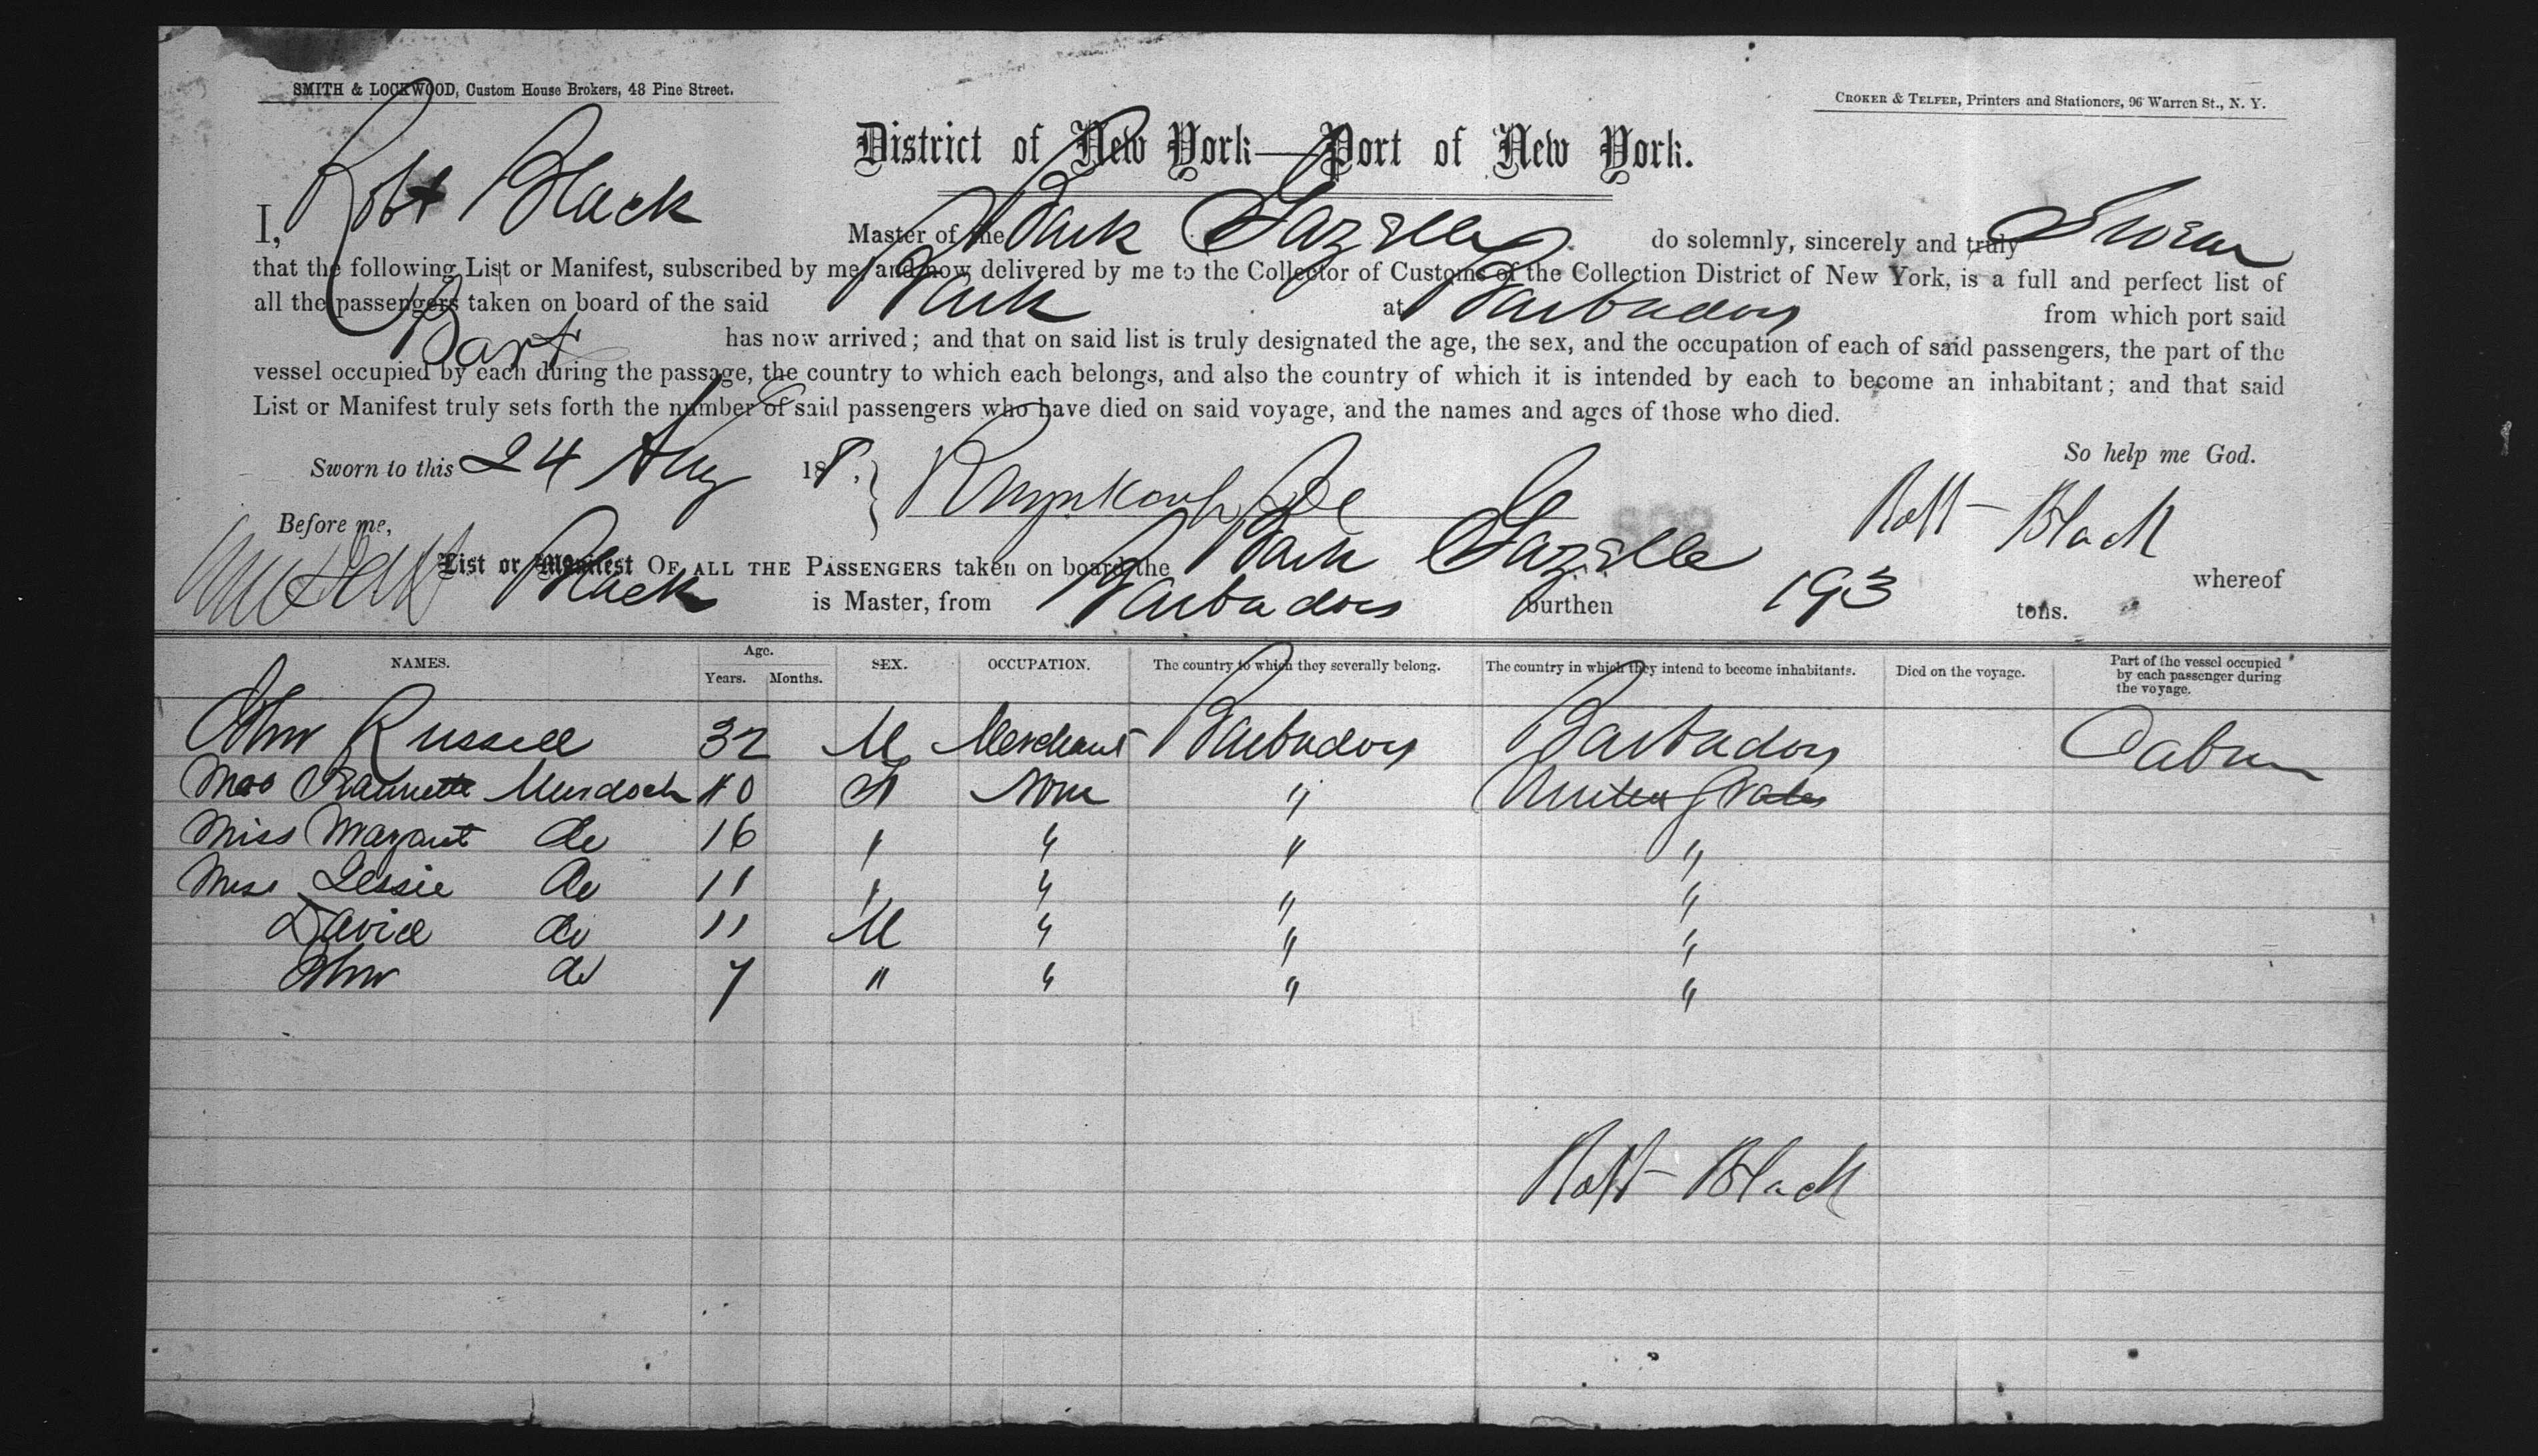 SMITH & LOCKWOOD, Custom House Brokers, 48 Pine Street.
CROKER & TELFER, Printers and Stationers, 96 Warren St., N. Y.
District of New York—Port of New York.
I, Robt Black Master of the Bark Gazelle do solemnly, sincerely and truly Swear
that the following List or Manifest, subscribed by me, and now delivered by me to the Collector of Customs of the Collection District of New York, is a full and perfect list of
all the passengers taken on board of the said Bark at Barbadoes from which port said
Bark has now arrived; and that on said list is truly designated the age, the sex, and the occupation of each of said passengers, the part of the
vessel occupied by each during the passage, the country to which each belongs, and also the country of which it is intended by each to become an inhabitant; and that said
List or Manifest truly sets forth the number of said passengers who have died on said voyage, and the names and ages of those who died.
So help me God.
Sworn to this 24 Aug 188
Robt Black
Before me,
List or Manifest OF ALL THE PASSENGERS taken on board the Bark Gazelle whereof
Black is Master, from Barbadoes burthen 193 tons.
NAMES. Age. Years. Months. SEX. OCCUPATION. The country to which they severally belong. The country in which they intend to become inhabitants. Died on the voyage. Part of the vessel occupied by each passenger during the voyage.
John Russell 32 M Merchant Barbadoes Barbadoes Cabin
Mrs Murdoch 40 F None " United States
Miss Margaret do 16 " " " "
Miss Jessie do 11 " " " "
David do 11 M " " "
John do 7 " " " "
Robt Black